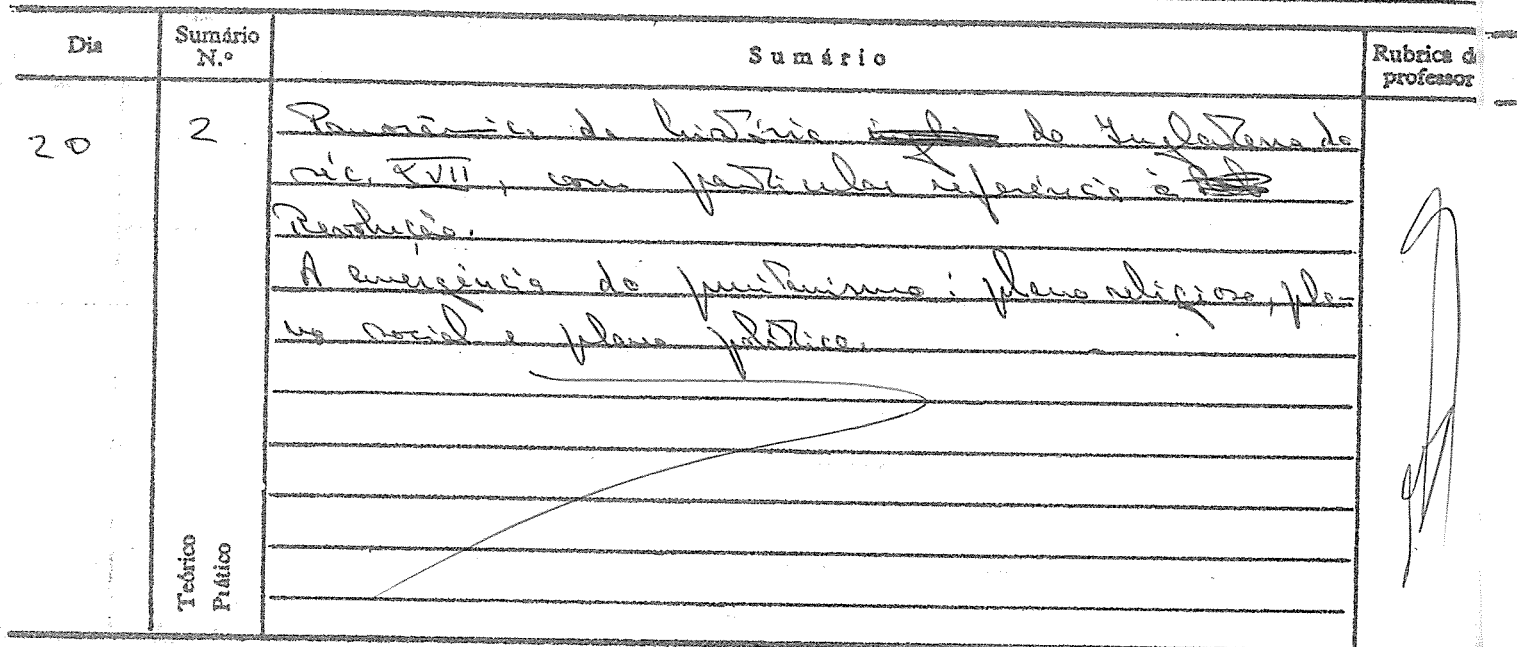 Dia
Sumário N.º
Sumário
Rubrica d
professor
20
2
Panorâmica da história da Inglaterra do
séc. XVII, com particular referência à
Revolução.
A emergência do puritanismo: plano religioso, pla-
no social e plano político.
Teórico
Prático